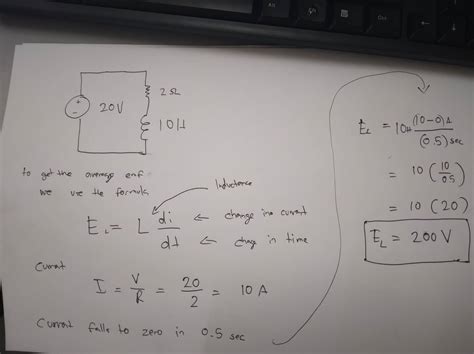 20V
2Ω
10H
to get the average emf
we use the formula
Inductance
E L = L di/dt
← change in current
← change in time
Current
I = V/R = 20/2 = 10 A
Current falls to zero in 0.5 sec
E L = 10H (10-0)A/(0.5) sec
= 10 (10/0.5)
= 10 (20)
E L = 200 V